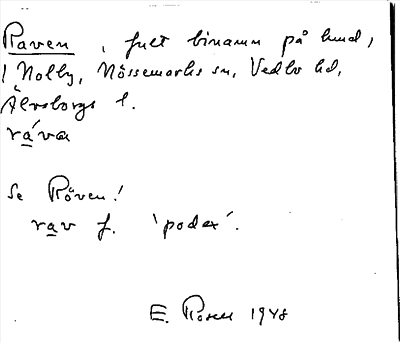 Raven, fult binamn på hund,
i Nolby, Nössemarks sn, Vedbo hd,
Älvsborgs l.
ráva
Se Röven!
rav f. 'podex'.
E. Rosell 1948